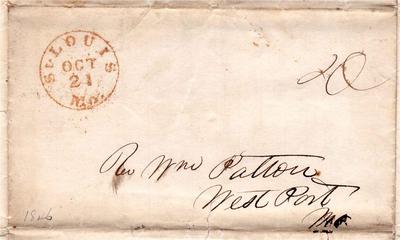 ST LOUIS
OCT
21
Mo.
20
Rev Wm Patton
West Port
Mo
1846